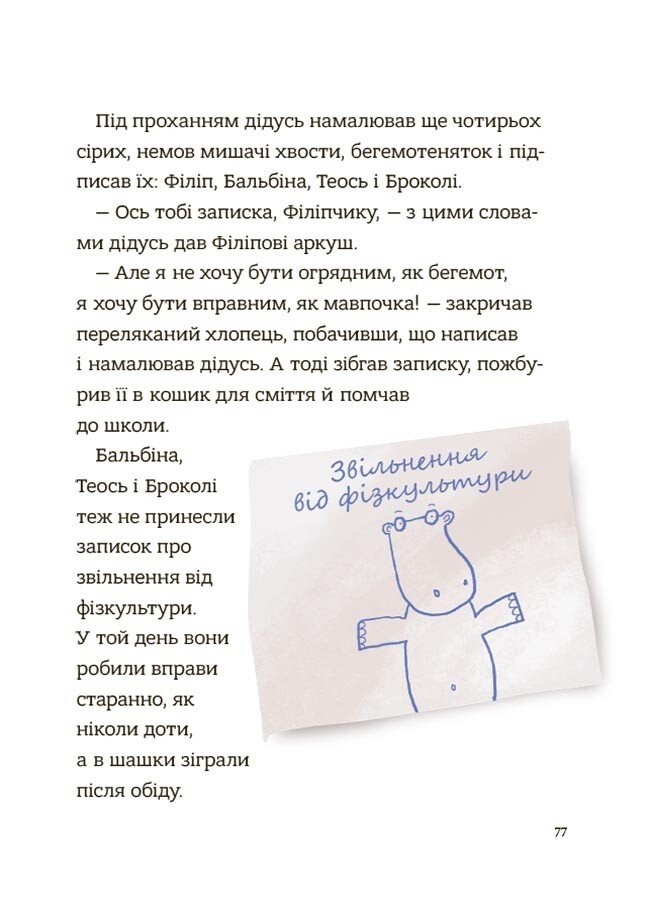 Під проханням дідусь намалював ще чотирьох
сірих, немов мишачі хвости, бегемотеняток і під-
писав їх: Філіп, Бальбіна, Теось і Броколі.
— Ось тобі записка, Філіпчику, — з цими слова-
ми дідусь дав Філіпові аркуш.
— Але я не хочу бути огрядним, як бегемот,
я хочу бути вправним, як мавпочка! — закричав
переляканий хлопець, побачивши, що написав
і намалював дідусь. А тоді зібгав записку, пожбу-
рив її в кошик для сміття й помчав
до школи.
Бальбіна,
Теось і Броколі
теж не принесли
записок про
звільнення від
фізкультури.
У той день вони
робили вправи
старанно, як
ніколи доти,
а в шашки зіграли
після обіду.
Звільнення
від фізкультури
77